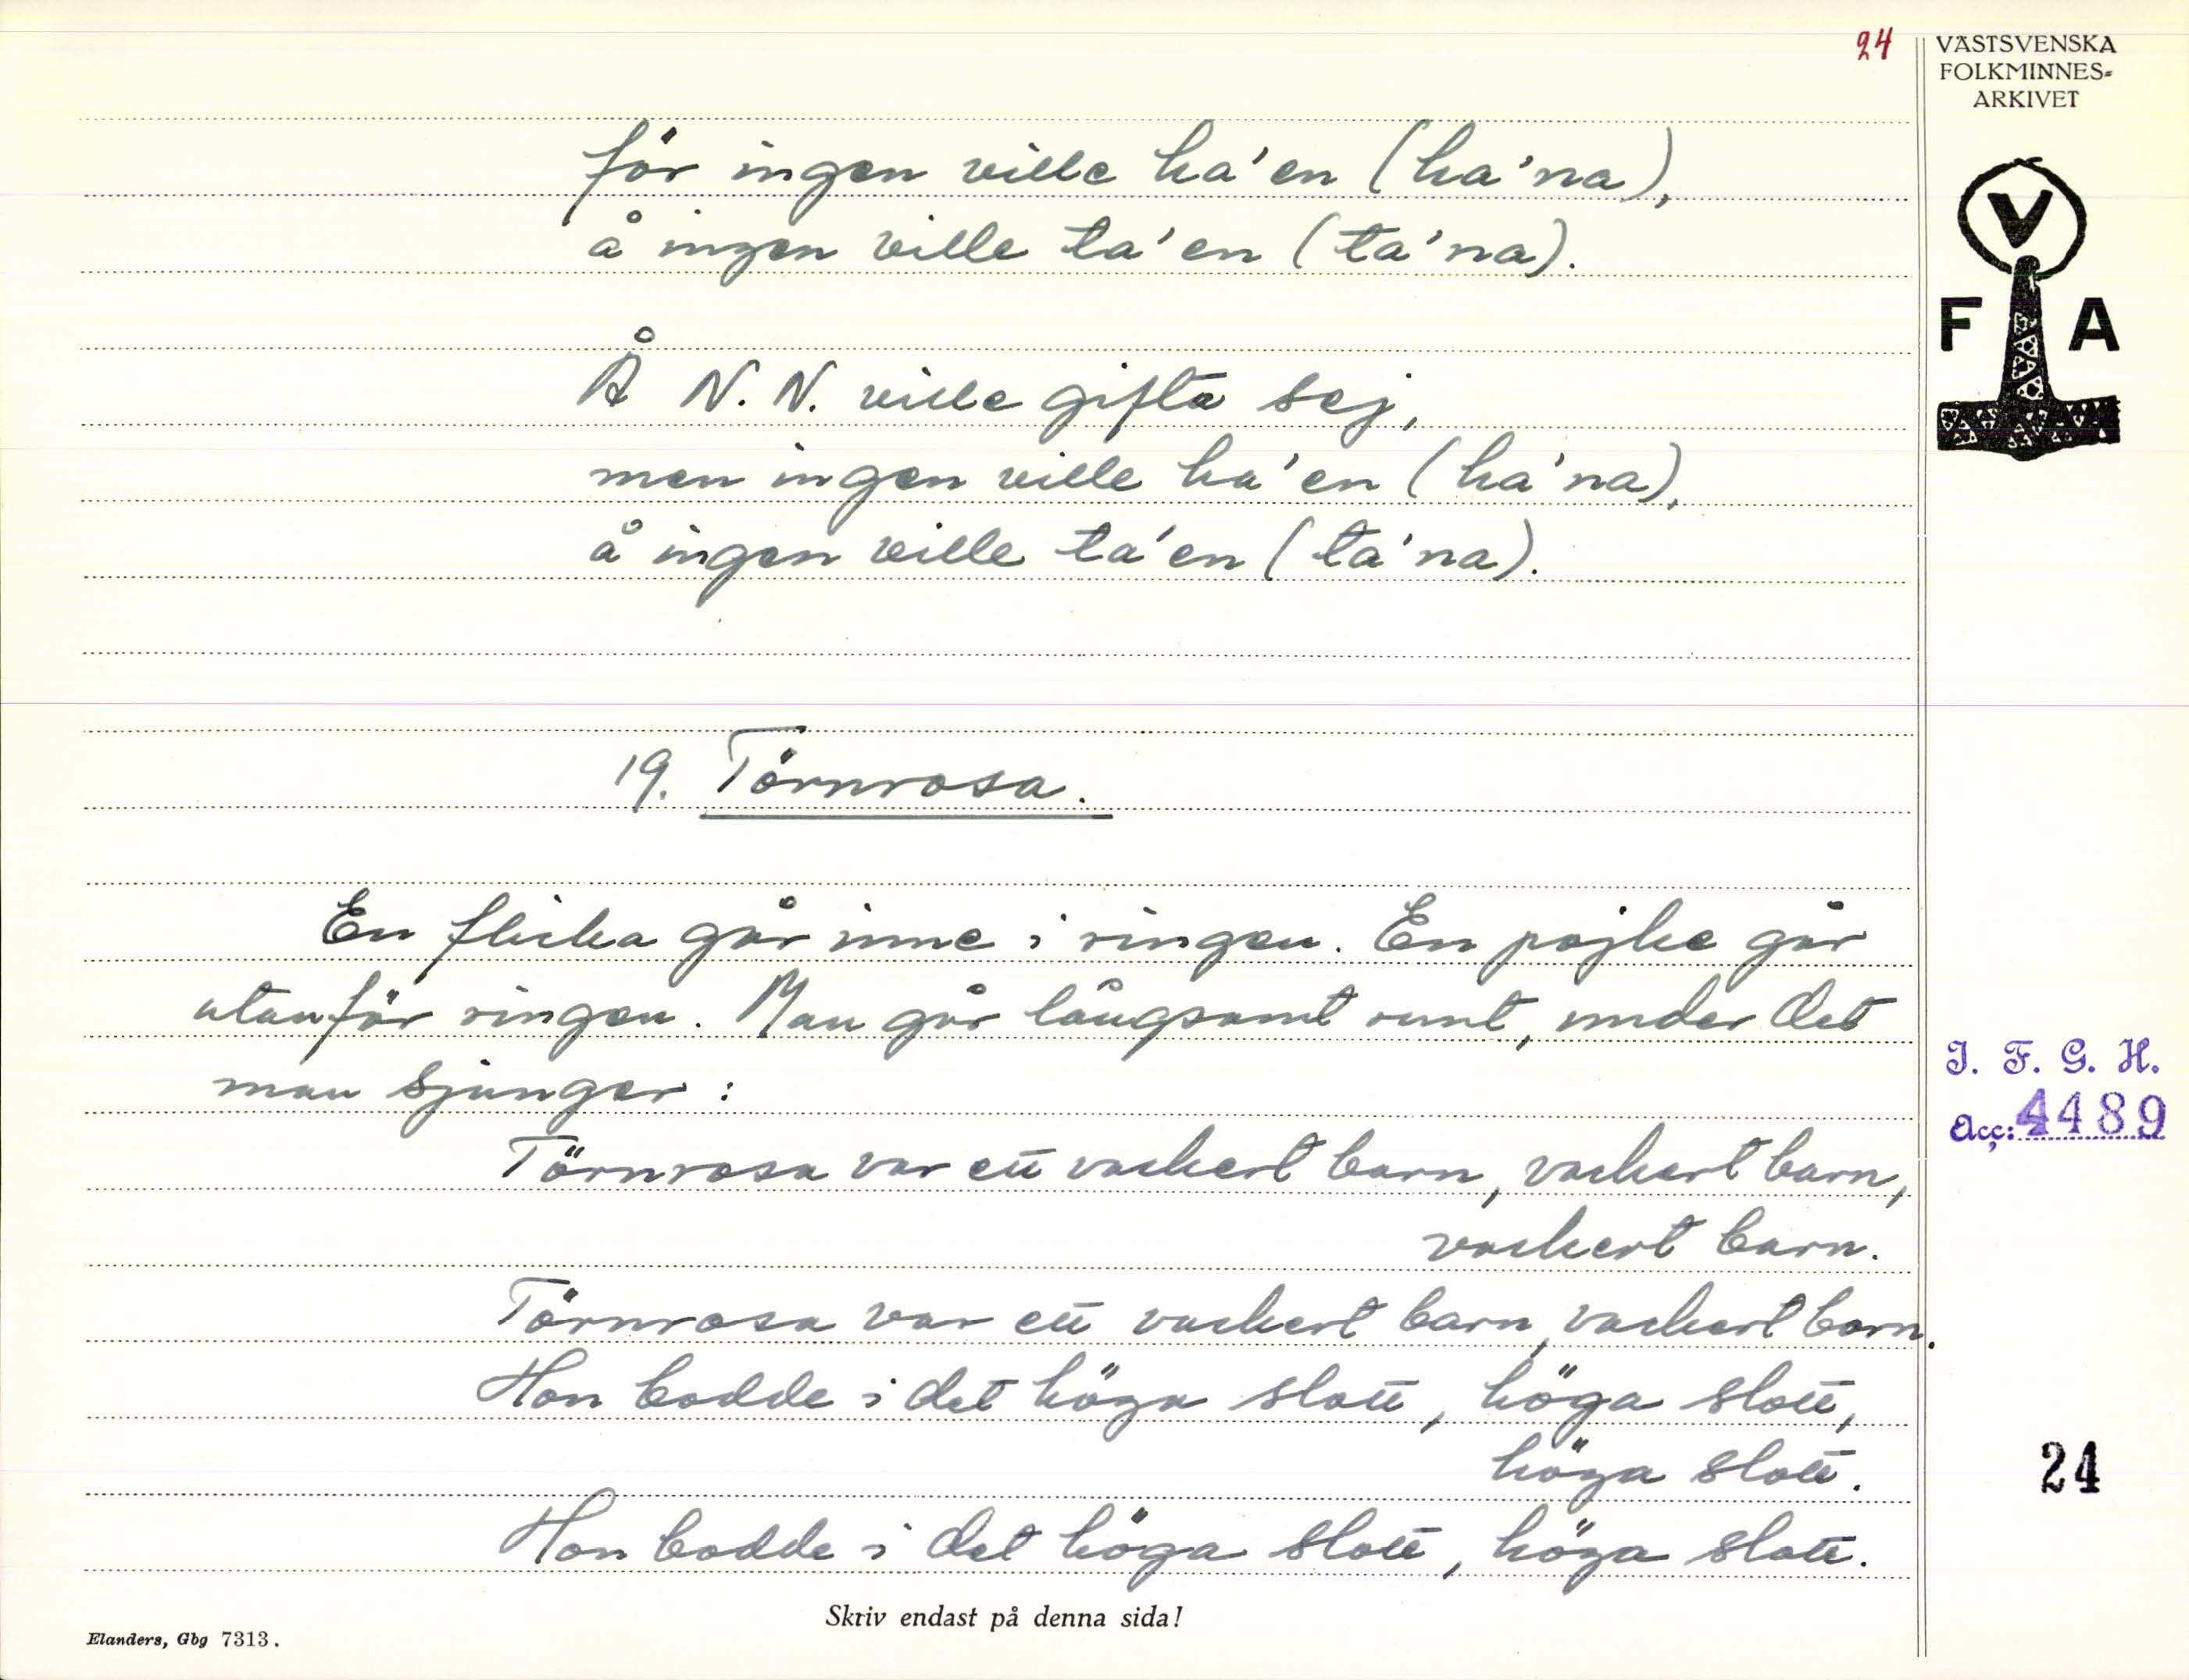 24
VÄSTSVENSKA
FOLKMINNES-
ARKIVET
för ingen ville ha'en (ha'na),
å ingen ville ta'en (ta'na).
V
F A
Å N. N. ville gifta sej,
men ingen ville ha'en (ha'na),
å ingen ville ta'en (ta'na).
19. Törnrosa.
En flicka går inne i ringen. En pojke går
utanför ringen. Man går långsamt runt, under det
man sjunger:
I. F. G. H.
Acc: 4489
Törnrosa var ett vackert barn, vackert barn,
vackert barn.
Törnrosa var ett vackert barn, vackert barn.
Hon bodde i det höga slott, höga slott,
höga slott.
24
Hon bodde i det höga slott, höga slott.
Skriv endast på denna sida!
Elanders, Gbg 7313.